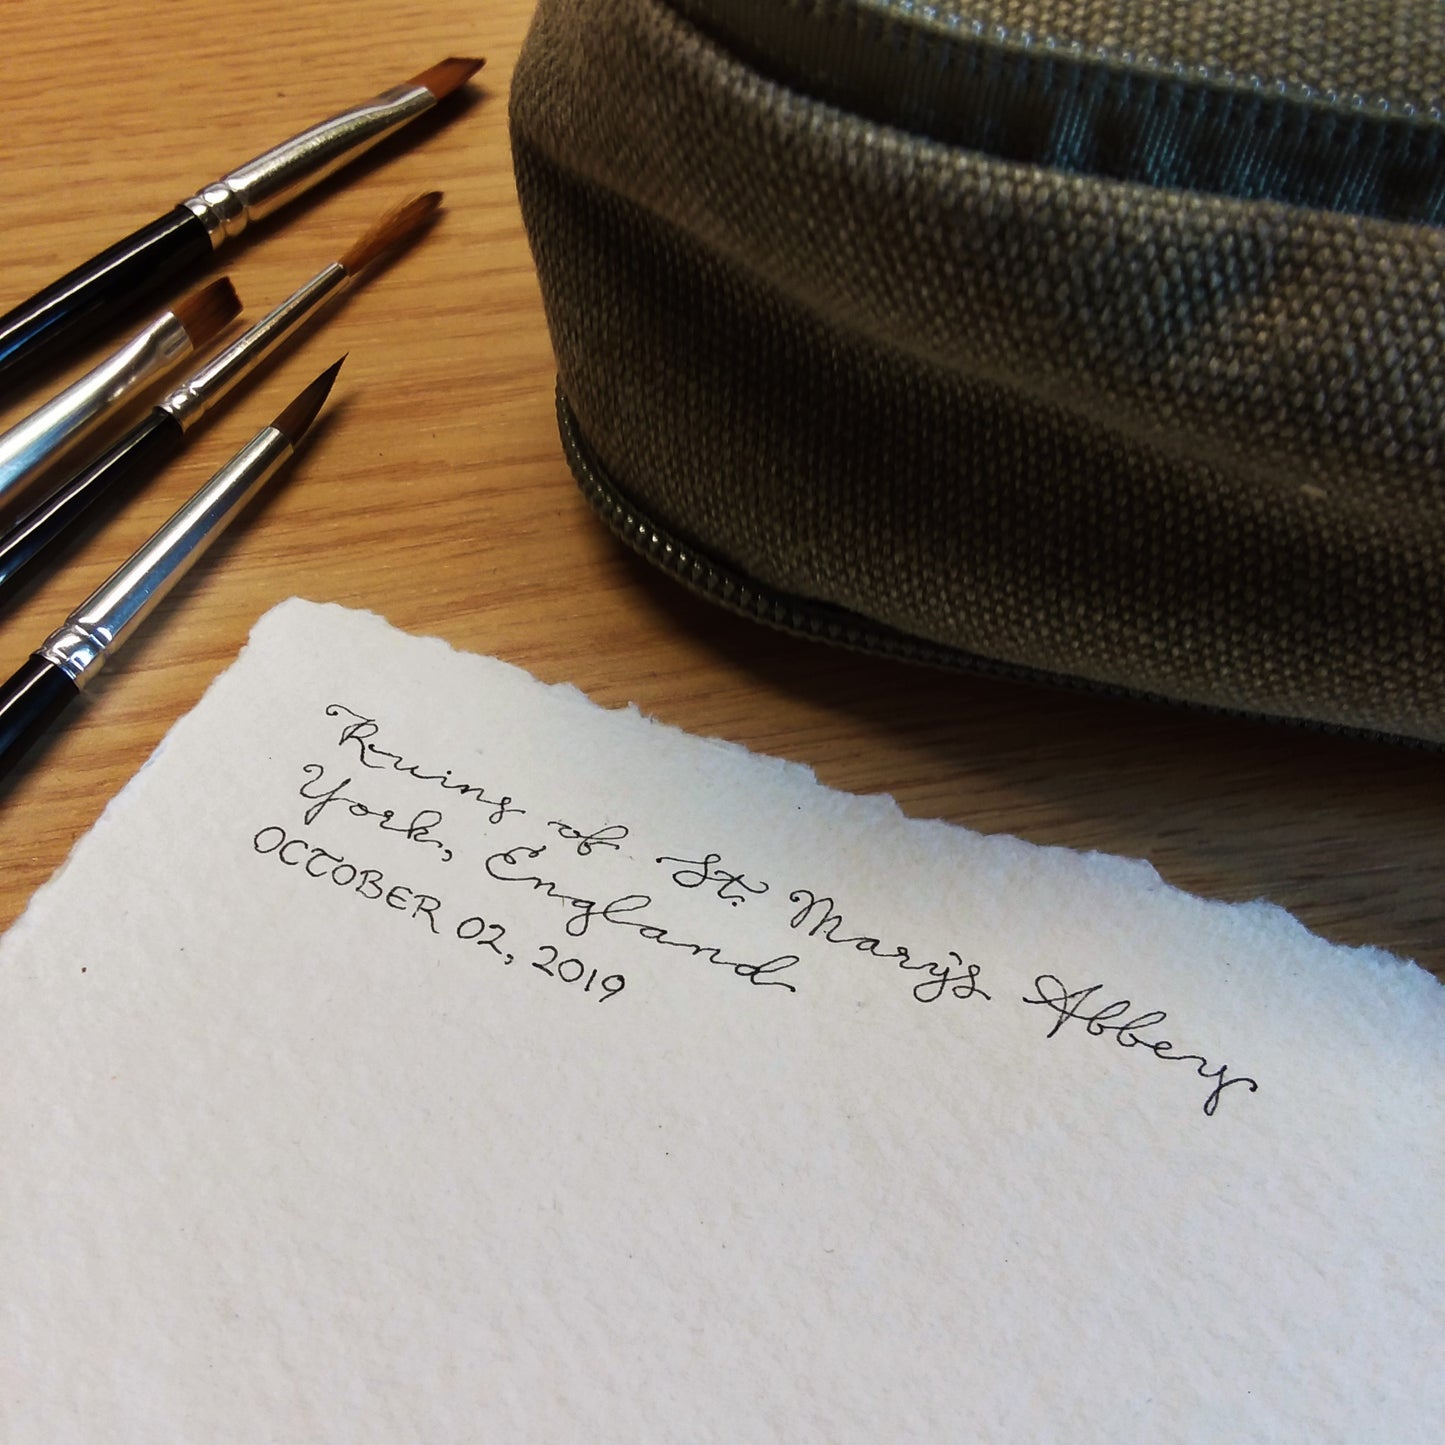 Ruins of St. Mary's Abbey
York, England
OCTOBER 02, 2019